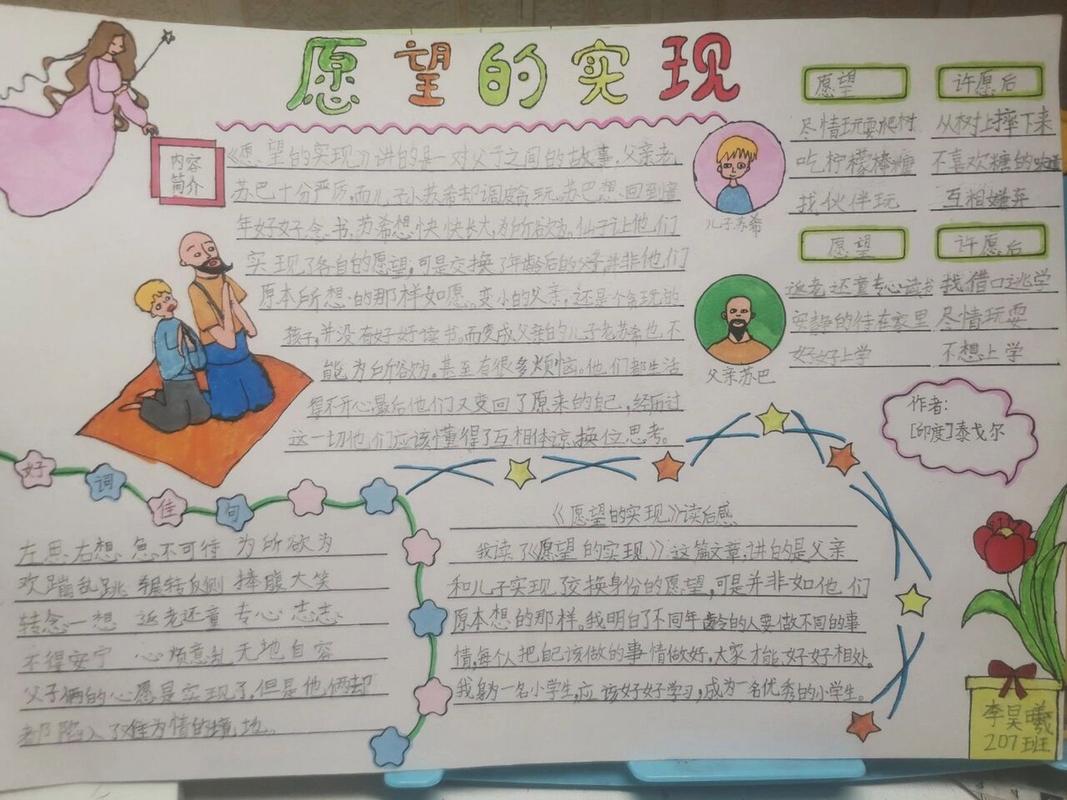 愿望的实现
内容
简介
《愿望的实现》讲的是一对父子之间的故事,父亲老
苏巴十分严厉,而儿子小苏希却调皮贪玩。苏巴想回到童
年好好念书,苏希想快快长大,为所欲为。仙子让他们
实现了各自的愿望;可是交换了年龄后的父子,并非他们
原本所想的那样如愿。变小的父亲,还是个贪玩的
孩子,并没有好好读书。而变成父亲的儿子老苏希也不
能为所欲为。甚至有很多烦恼。他们都生活
得不开心,最后他们又变回了原来的自己,经历过
这一切他们应该懂得了互相体谅,换位思考。
儿子苏希
愿望
许愿后
尽情玩耍爬树
从树上摔下来
吃柠檬棒糖
不喜欢糖的味道
找伙伴玩
互相嫌弃
父亲苏巴
愿望
许愿后
返老还童专心读书
找借口逃学
安静的待在家里
尽情玩耍
好好上学
不想上学
作者:
[印度]泰戈尔
好词佳句
左思右想 急不可待 为所欲为
欢蹦乱跳 辗转反侧 捧腹大笑
转念一想 返老还童 专心志志
不得安宁 心烦意乱 无地自容
父子俩的心愿是实现了,但是他俩却
都陷入了难为情的境地。
《愿望的实现》读后感
我读了《愿望的实现》这篇文章,讲的是父亲
和儿子实现了交换身份的愿望,可是并非如他们
原本想的那样。我明白了不同年龄的人要做不同的事
情,每个人把自己该做的事情做好,大家才能好好相处。
我身为一名小学生,应该好好学习,成为一名优秀的小学生。
李昊曦
207班